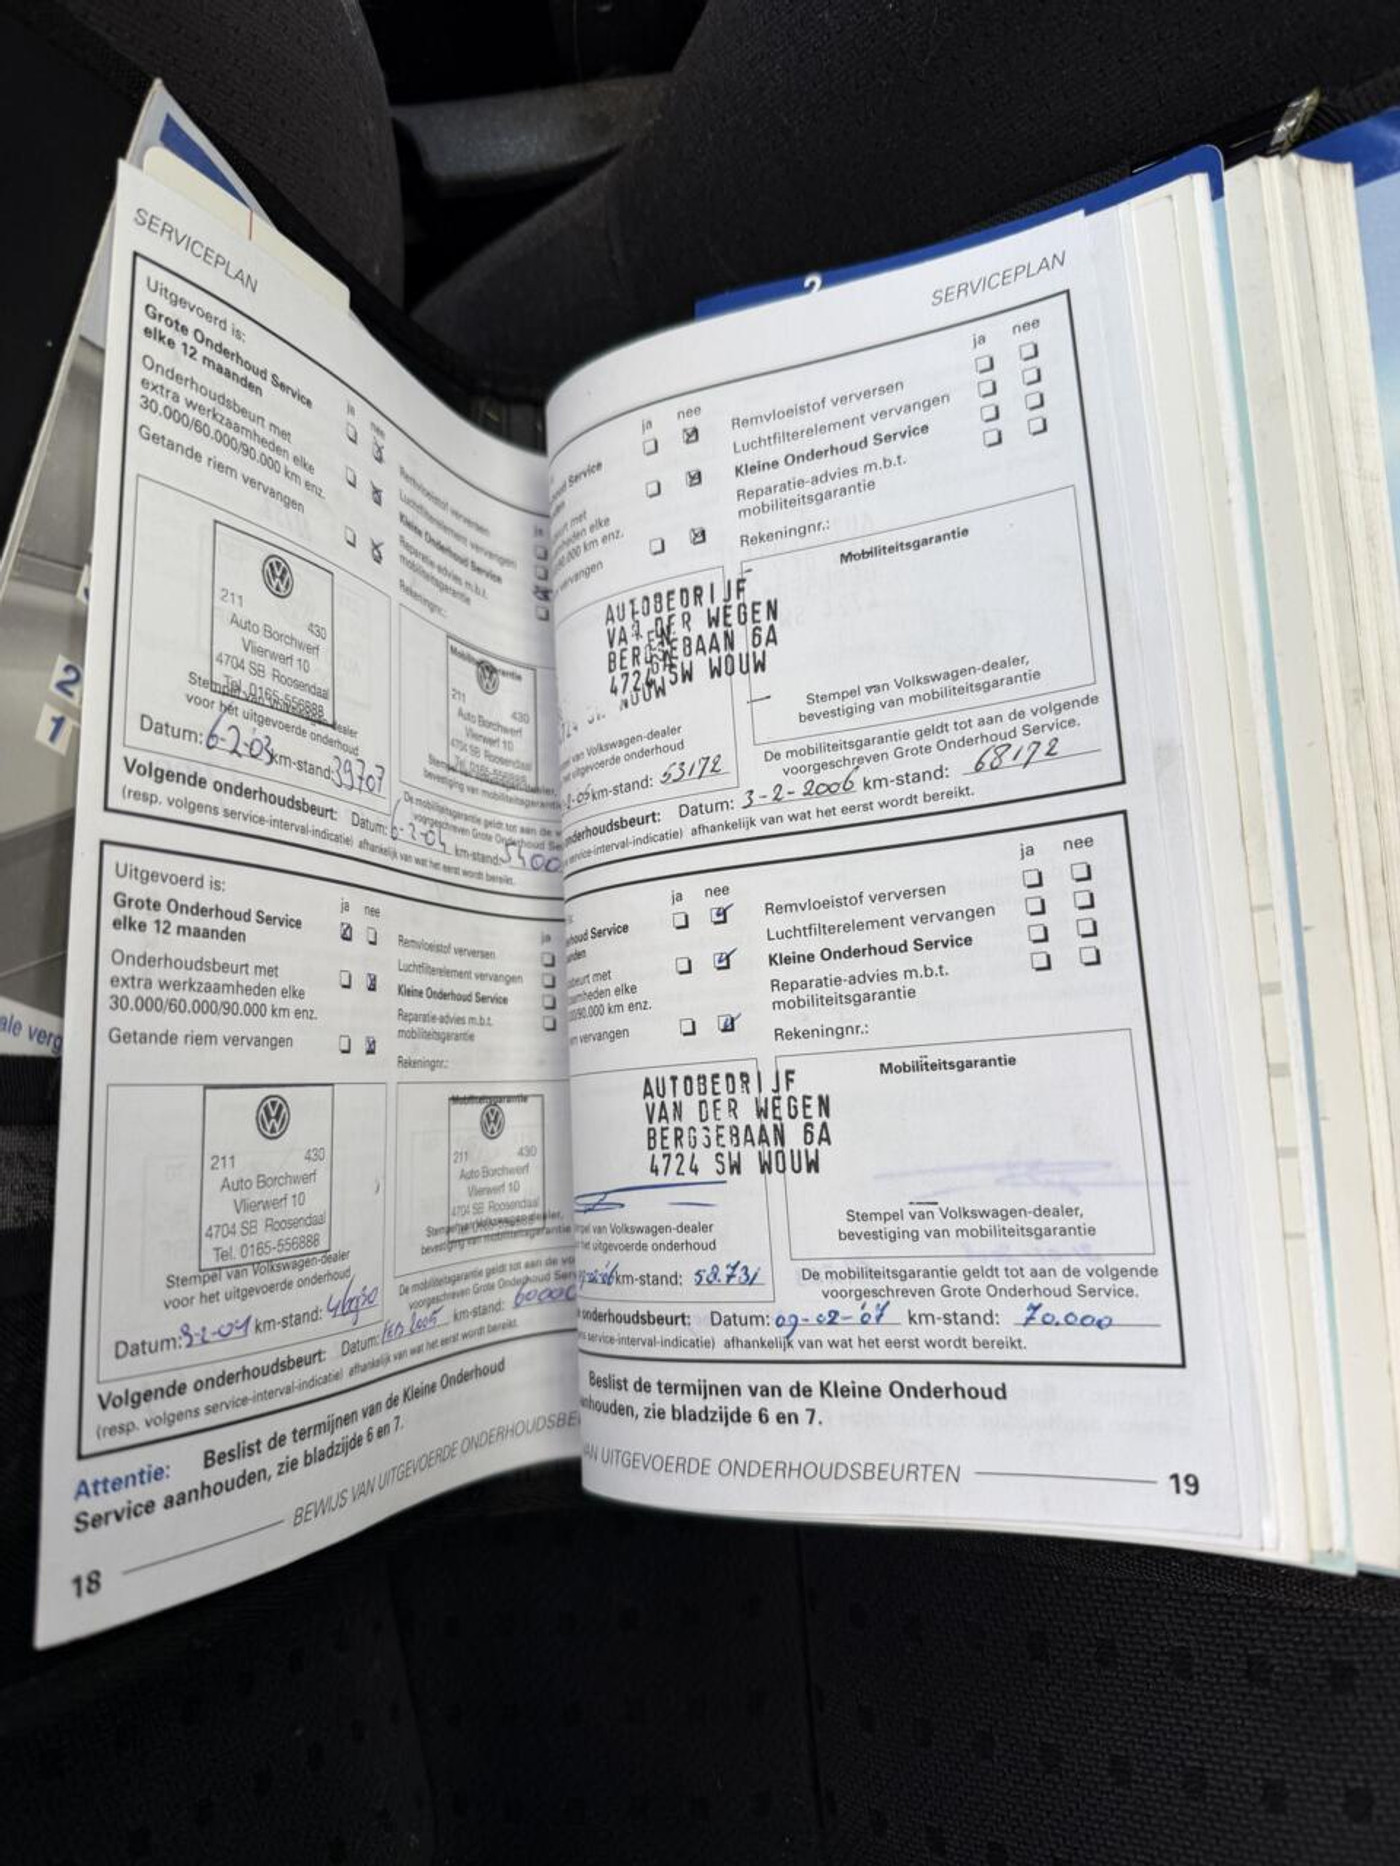 2
1
ale verg
2
SERVICEPLAN
Uitgevoerd is:
Grote Onderhoud Service
elke 12 maanden
Onderhoudsbeurt met
extra werkzaamheden elke
30.000/60.000/90.000 km enz.
Getande riem vervangen
ja nee
Remvloeistof verversen
Luchtfilterelement vervangen
Kleine Onderhoud Service
Reparatie-advies m.b.t.
mobiliteitsgarantie
Rekeningnr.:
ja
211 430
Auto Borchwerf
Vlierwerf 10
4704 SB Roosendaal
Tel. 0165-556888
Stempel van Volkswagen-dealer
voor het uitgevoerde onderhoud
Datum: 6-2-03 km-stand: 39707
Mobiliteitsgarantie
211 430
Auto Borchwerf
Vlierwerf 10
4704 SB Roosendaal
Tel. 0165-556888
Stempel van Volkswagen-dealer,
bevestiging van mobiliteitsgarantie
De mobiliteitsgarantie geldt tot aan de
voorgeschreven Grote Onderhoud
Volgende onderhoudsbeurt: Datum: 6-2-04 km-stand:
(resp. volgens service-interval-indicatie) afhankelijk van wat het eerst wordt bereikt.
Uitgevoerd is:
Grote Onderhoud Service
elke 12 maanden
Onderhoudsbeurt met
extra werkzaamheden elke
30.000/60.000/90.000 km enz.
Getande riem vervangen
ja nee
Remvloeistof verversen
Luchtfilterelement vervangen
Kleine Onderhoud Service
Reparatie-advies m.b.t.
mobiliteitsgarantie
Rekeningnr.:
ja
211 430
Auto Borchwerf
Vlierwerf 10
4704 SB Roosendaal
Tel. 0165-556888
Stempel van Volkswagen-dealer
voor het uitgevoerde onderhoud
Datum: km-stand:
Mobiliteitsgarantie
211 430
Auto Borchwerf
Vlierwerf 10
4704 SB Roosendaal
Tel. 0165-556888
Stempel van Volkswagen-dealer,
bevestiging van mobiliteitsgarantie
De mobiliteitsgarantie geldt tot aan de
voorgeschreven Grote Onderhoud
Volgende onderhoudsbeurt: Datum: FEB 2005 km-stand: 60000
(resp. volgens service-interval-indicatie) afhankelijk van wat het eerst wordt bereikt.
Attentie: Beslist de termijnen van de Kleine Onderhoud
Service aanhouden, zie bladzijde 6 en 7.
BEWIJS VAN UITGEVOERDE ONDERHOUDSBE
18
SERVICEPLAN
ja nee
Service
met
elke
90.000 km enz.
vervangen
ja nee
Remvloeistof verversen
Luchtfilterelement vervangen
Kleine Onderhoud Service
Reparatie-advies m.b.t.
mobiliteitsgarantie
Rekeningnr.:
AUTOBEDRIJF
VAN DER WEGEN
BERGSEBAAN 6A
4724 SW WOUW
van Volkswagen-dealer
uitgevoerde onderhoud
km-stand: 53172
Mobiliteitsgarantie
Stempel van Volkswagen-dealer,
bevestiging van mobiliteitsgarantie
De mobiliteitsgarantie geldt tot aan de volgende
voorgeschreven Grote Onderhoud Service.
onderhoudsbeurt: Datum: 3-2-2006 km-stand: 68172
service-interval-indicatie) afhankelijk van wat het eerst wordt bereikt.
ja nee
houd Service
met
elke
90.000 km enz.
vervangen
ja nee
Remvloeistof verversen
Luchtfilterelement vervangen
Kleine Onderhoud Service
Reparatie-advies m.b.t.
mobiliteitsgarantie
Rekeningnr.:
AUTOBEDRIJF
VAN DER WEGEN
BERGSEBAAN 6A
4724 SW WOUW
van Volkswagen-dealer
het uitgevoerde onderhoud
km-stand: 58.731
Mobiliteitsgarantie
Stempel van Volkswagen-dealer,
bevestiging van mobiliteitsgarantie
De mobiliteitsgarantie geldt tot aan de volgende
voorgeschreven Grote Onderhoud Service.
onderhoudsbeurt: Datum: 09-02-'07 km-stand: 70.000
service-interval-indicatie) afhankelijk van wat het eerst wordt bereikt.
Beslist de termijnen van de Kleine Onderhoud
houden, zie bladzijde 6 en 7.
AN UITGEVOERDE ONDERHOUDSBEURTEN
19